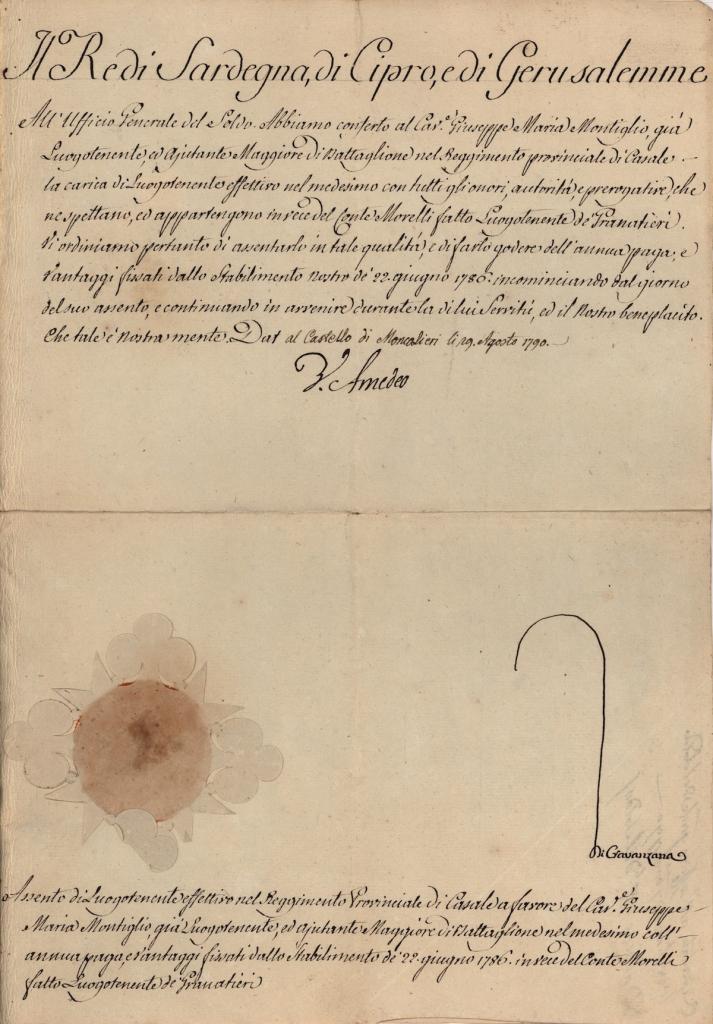 Il Re di Sardegna, di Cipro, e di Gerusalemme
All'Ufficio Generale del Soldo. Abbiamo conferto al Cav.e Giuseppe Maria Montiglio, già
Luogotenente, ed Ajutante Maggiore di Battaglione nel Reggimento provinciale di Casale
la carica di Luogotenente effettivo nel medesimo con tutti gli onori, autorità, e prerogative, che
ne spettano, ed appartengono in vece del Conte Morelli fatto Luogotenente de' Granatieri.
V'ordiniamo pertanto di assentarlo in tale qualità, e di farlo godere dell'annua paga, e
vantaggi fissati dallo Stabilimento nostro de' 22. giugno 1786. incominciando dal giorno
del suo assento, e continuando in avvenire durante la di lui Servitù, ed il Nostro beneplacito.
Che tale è nostra mente. Dat al Castello di Moncalieri li 29. Agosto 1790.
V. Amedeo
di Cravanzana
Assento di Luogotenente effettivo nel Reggimento Provinciale di Casale a favore del Cav.e Giuseppe
Maria Montiglio, già Luogotenente, ed ajutante Maggiore di Battaglione nel medesimo coll'
annua paga, e vantaggi fissati dallo Stabilimento de' 22. giugno 1786. in vece del Conte Morelli
fatto Luogotenente de' Granatieri